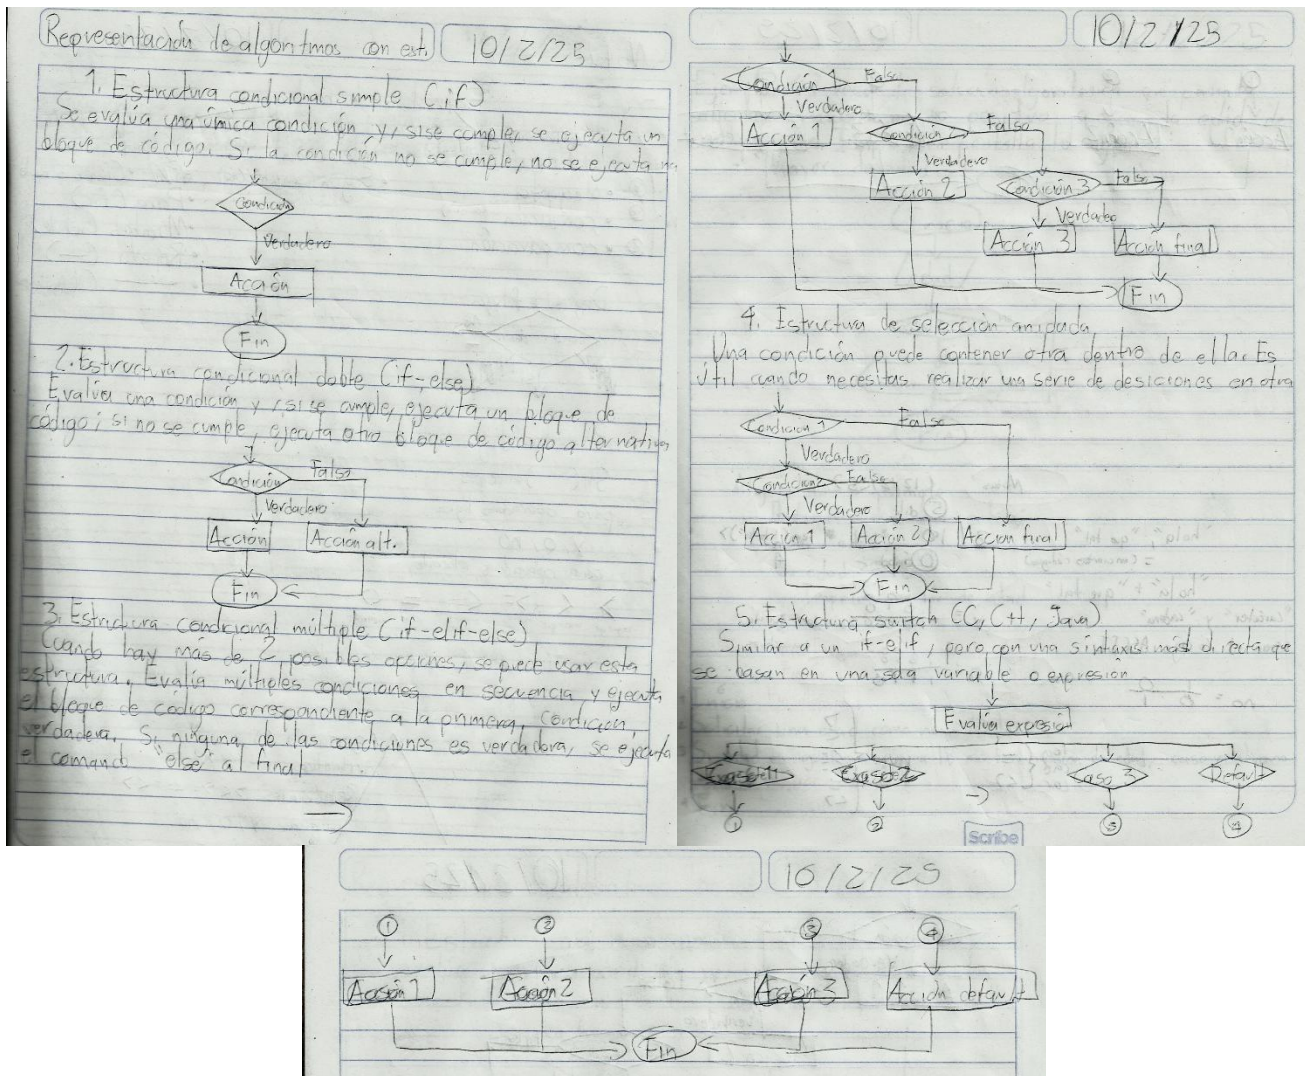 Representación de algoritmos con est.
10/2/25
1. Estructura condicional simple (if)
Se evalúa una única condición, y, si se cumple, se ejecuta un
bloque de código. Si la condición no se cumple, no se ejecuta
Condición
Verdadero
Acción
Fin
2. Estructura condicional doble (if-else)
Evalúa una condición y, si se cumple, ejecuta un bloque de
código; si no se cumple, ejecuta otro bloque de código alternativo,
Condición
Falso
Verdadero
Acción
Acción alt.
Fin
3. Estructura condicional múltiple (if-elif-else)
Cuando hay más de 2 posibles opciones, se puede usar esta
estructura. Evalúa múltiples condiciones en secuencia y ejecuta
el bloque de código correspondiente a la primera condición
verdadera. Si ninguna de las condiciones es verdadera, se ejecuta
el comando "else" al final
10/2/25
Condición 1
Falso
Verdadero
Acción 1
Condición
Falso
Verdadero
Acción 2
Condición 3
Falso
Verdadero
Acción 3
Acción final
Fin
4. Estructura de selección anidada
Una condición puede contener otra dentro de ella. Es
útil cuando necesitas realizar una serie de desiciones en otra
Condición 1
Falso
Verdadero
Condición 2
Falso
Verdadero
Acción 1
Acción 2
Acción final
Fin
5. Estructura switch (C, C++, Java)
Similar a un if-elif, pero con una sintáxis más directa que
se basan en una sola variable o expresión
Evalúa expresió
Caso 3
Default
1
2
3
4
Scribe
10/2/25
1
2
3
4
Acción 1
Acción 2
Acción 3
Acción default
Fin